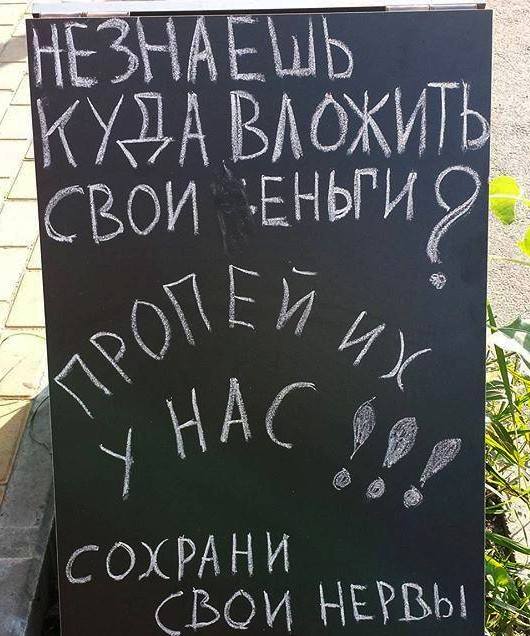 НЕЗНАЕШЬ
КУДА ВЛОЖИТЬ
СВОИ ЕНЬГИ?
ПРОПЕЙ ИХ
У НАС !!!
СОХРАНИ
СВОИ НЕРВЫ